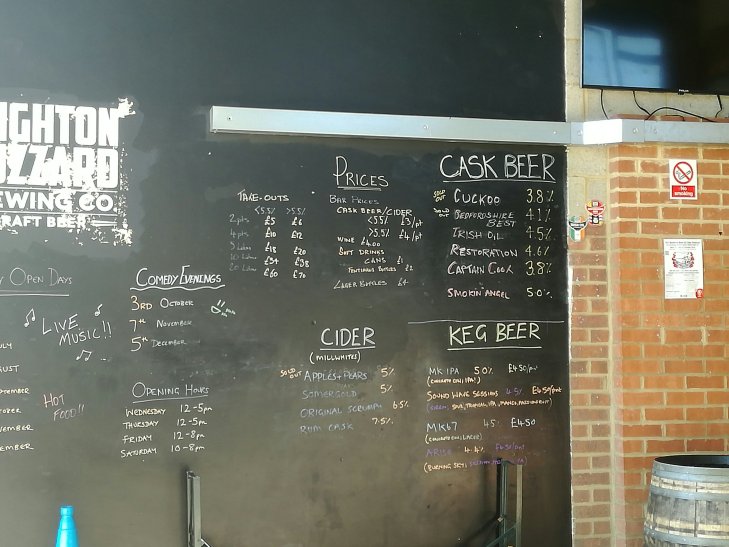 IGHTON
UZZARD
EWING CO.
RAFT BEER
OPEN DAYS
LIVE
MUSIC!!
HOT
FOOD!!
COMEDY EVENINGS
3RD OCTOBER
7TH NOVEMBER
5TH DECEMBER
OPENING HOURS
WEDNESDAY 12-5pm
THURSDAY 12-5pm
FRIDAY 12-8pm
SATURDAY 10-8pm
TAKE-OUTS
<5.5% >5.5%
2 pts £5 £6
4 pts £10 £12
£18 £20
£34 £38
£60 £70
PRICES
BAR PRICES
CASK BEER/CIDER
<5.5% £3/pt
>5.5% £4/pt
WINE £4.00
SOFT DRINKS
CANS £1
£2
LAGER BOTTLES £4
CIDER
(MILLWHITES)
SOLD OUT APPLES+PEARS 5%
SOMERGOLD 5%
ORIGINAL SCRUMPY 6.5%
RUM CASK 7.5%
CASK BEER
SOLD OUT CUCKOO 3.8%
SOLD OUT BEDFORDSHIRE BEST 4.1%
IRISH OIL 4.5%
RESTORATION 4.6%
CAPTAIN COOK 3.8%
SMOKIN' ANGEL 5.0%
KEG BEER
MK IPA 5.0% £4.50/pnt
SOUND WAVE SESSIONS 4.5% £4.50/pnt
MK67 4.5% £4.50
ARISE 4.4%
(BURNING SKY)
No
smoking